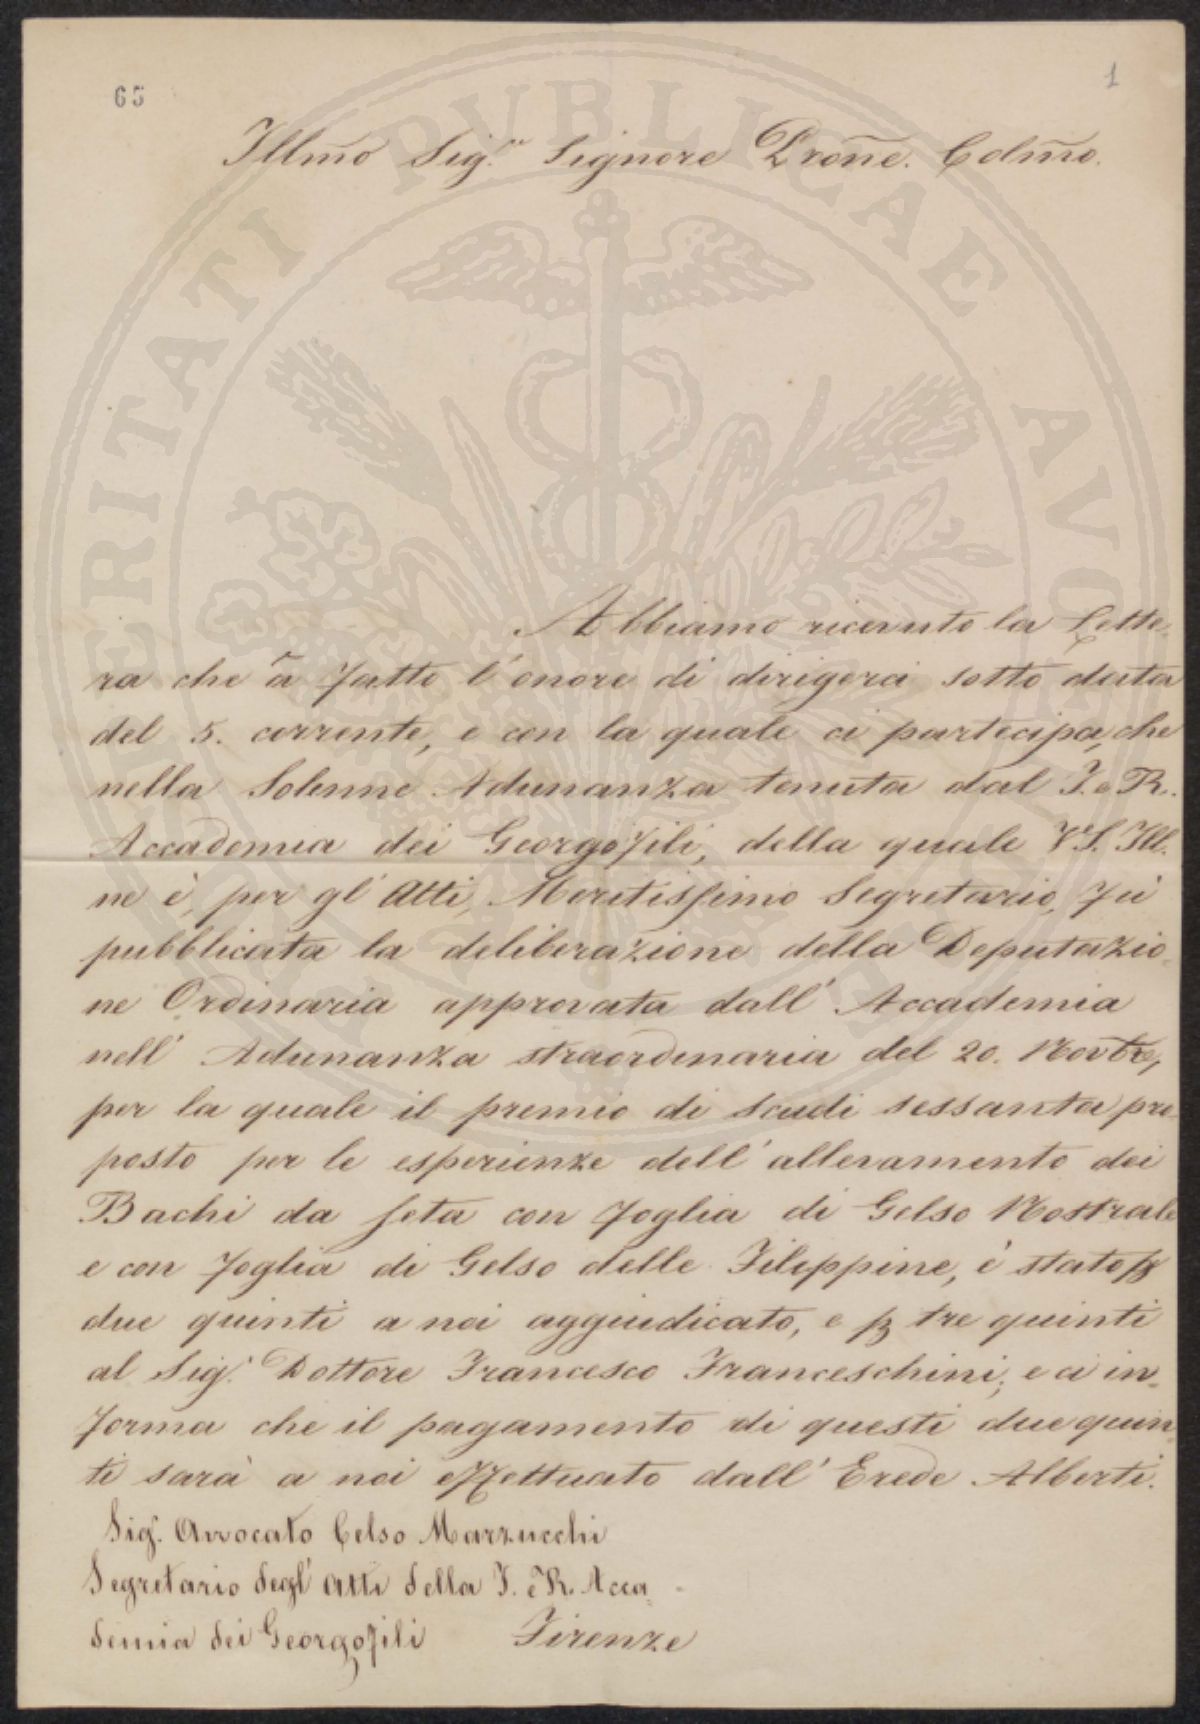 65
1
Illm̃o Sig.r Signore Prõne. Colm̃o.
Abbiamo ricevuto la Lette-
ra che à fatto l'onore di dirigerci sotto data
del 5. corrente, e con la quale ci partecipa, che
nella Solenne Adunanza tenuta dal I. e R.
Accademia dei Georgofili, della quale V.S. Ill-
ne è, per gl'Atti, Meritissimo Segretario, fù
pubblicata la deliberazione della Deputazio-
ne Ordinaria approvata dall'Accademia
nell'Adunanza straordinaria del 20. Novbre,
per la quale il premio di scudi sessanta pro-
posto per le esperienze dell'allevamento dei
Bachi da seta con foglia di Gelso Nostrale
e con foglia di Gelso delle Filippine, è stato p
due quinti a noi aggiudicato, e p tre quinti
al Sig. Dottore Francesco Franceschini; e ci in-
forma che il pagamento di questi due quin-
ti sarà a noi effettuato dall'Erede Alberti.
Sig. Avvocato Celso Marzucchi
Segretario degl'Atti della I. e R. Acca-
demia dei Georgofili Firenze
PUBLICAE